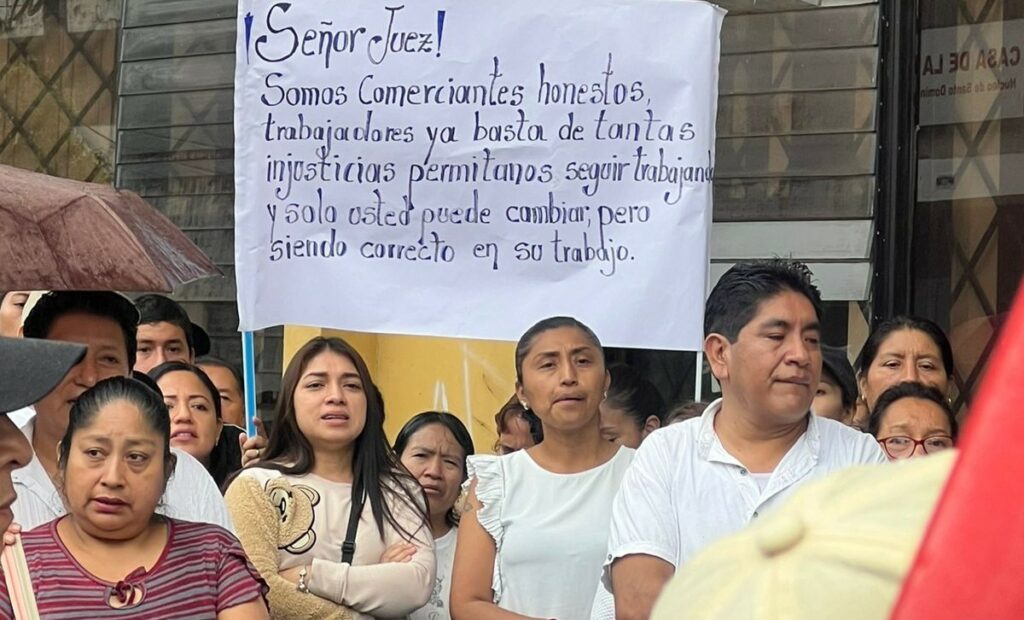 ¡Señor Juez!
Somos Comerciantes honestos,
trabajadores ya basta de tantas
injusticias permitanos seguir trabajando
y solo usted puede cambiar, pero
siendo correcto en su trabajo.
CASA DE LA
Núcleo de Santo Domin